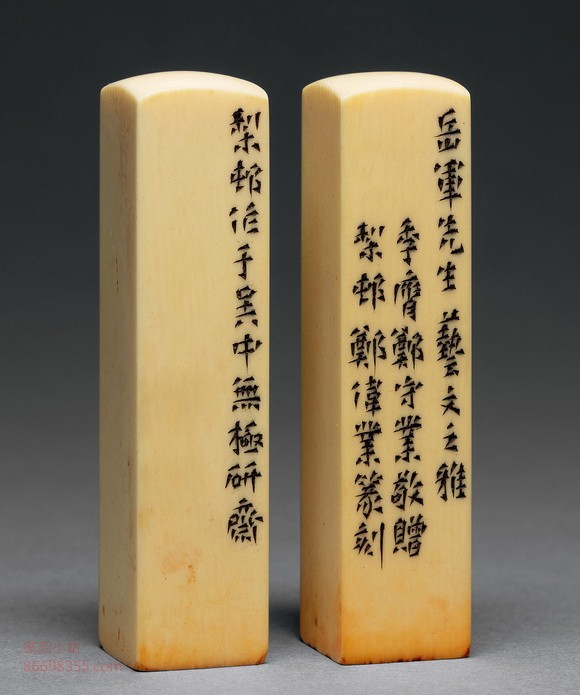 梨邨作于吴中無極研齋
岳軍先生藝文之雅
季膺鄭守業敬贈
梨邨鄭偉業篆刻
86608355.com